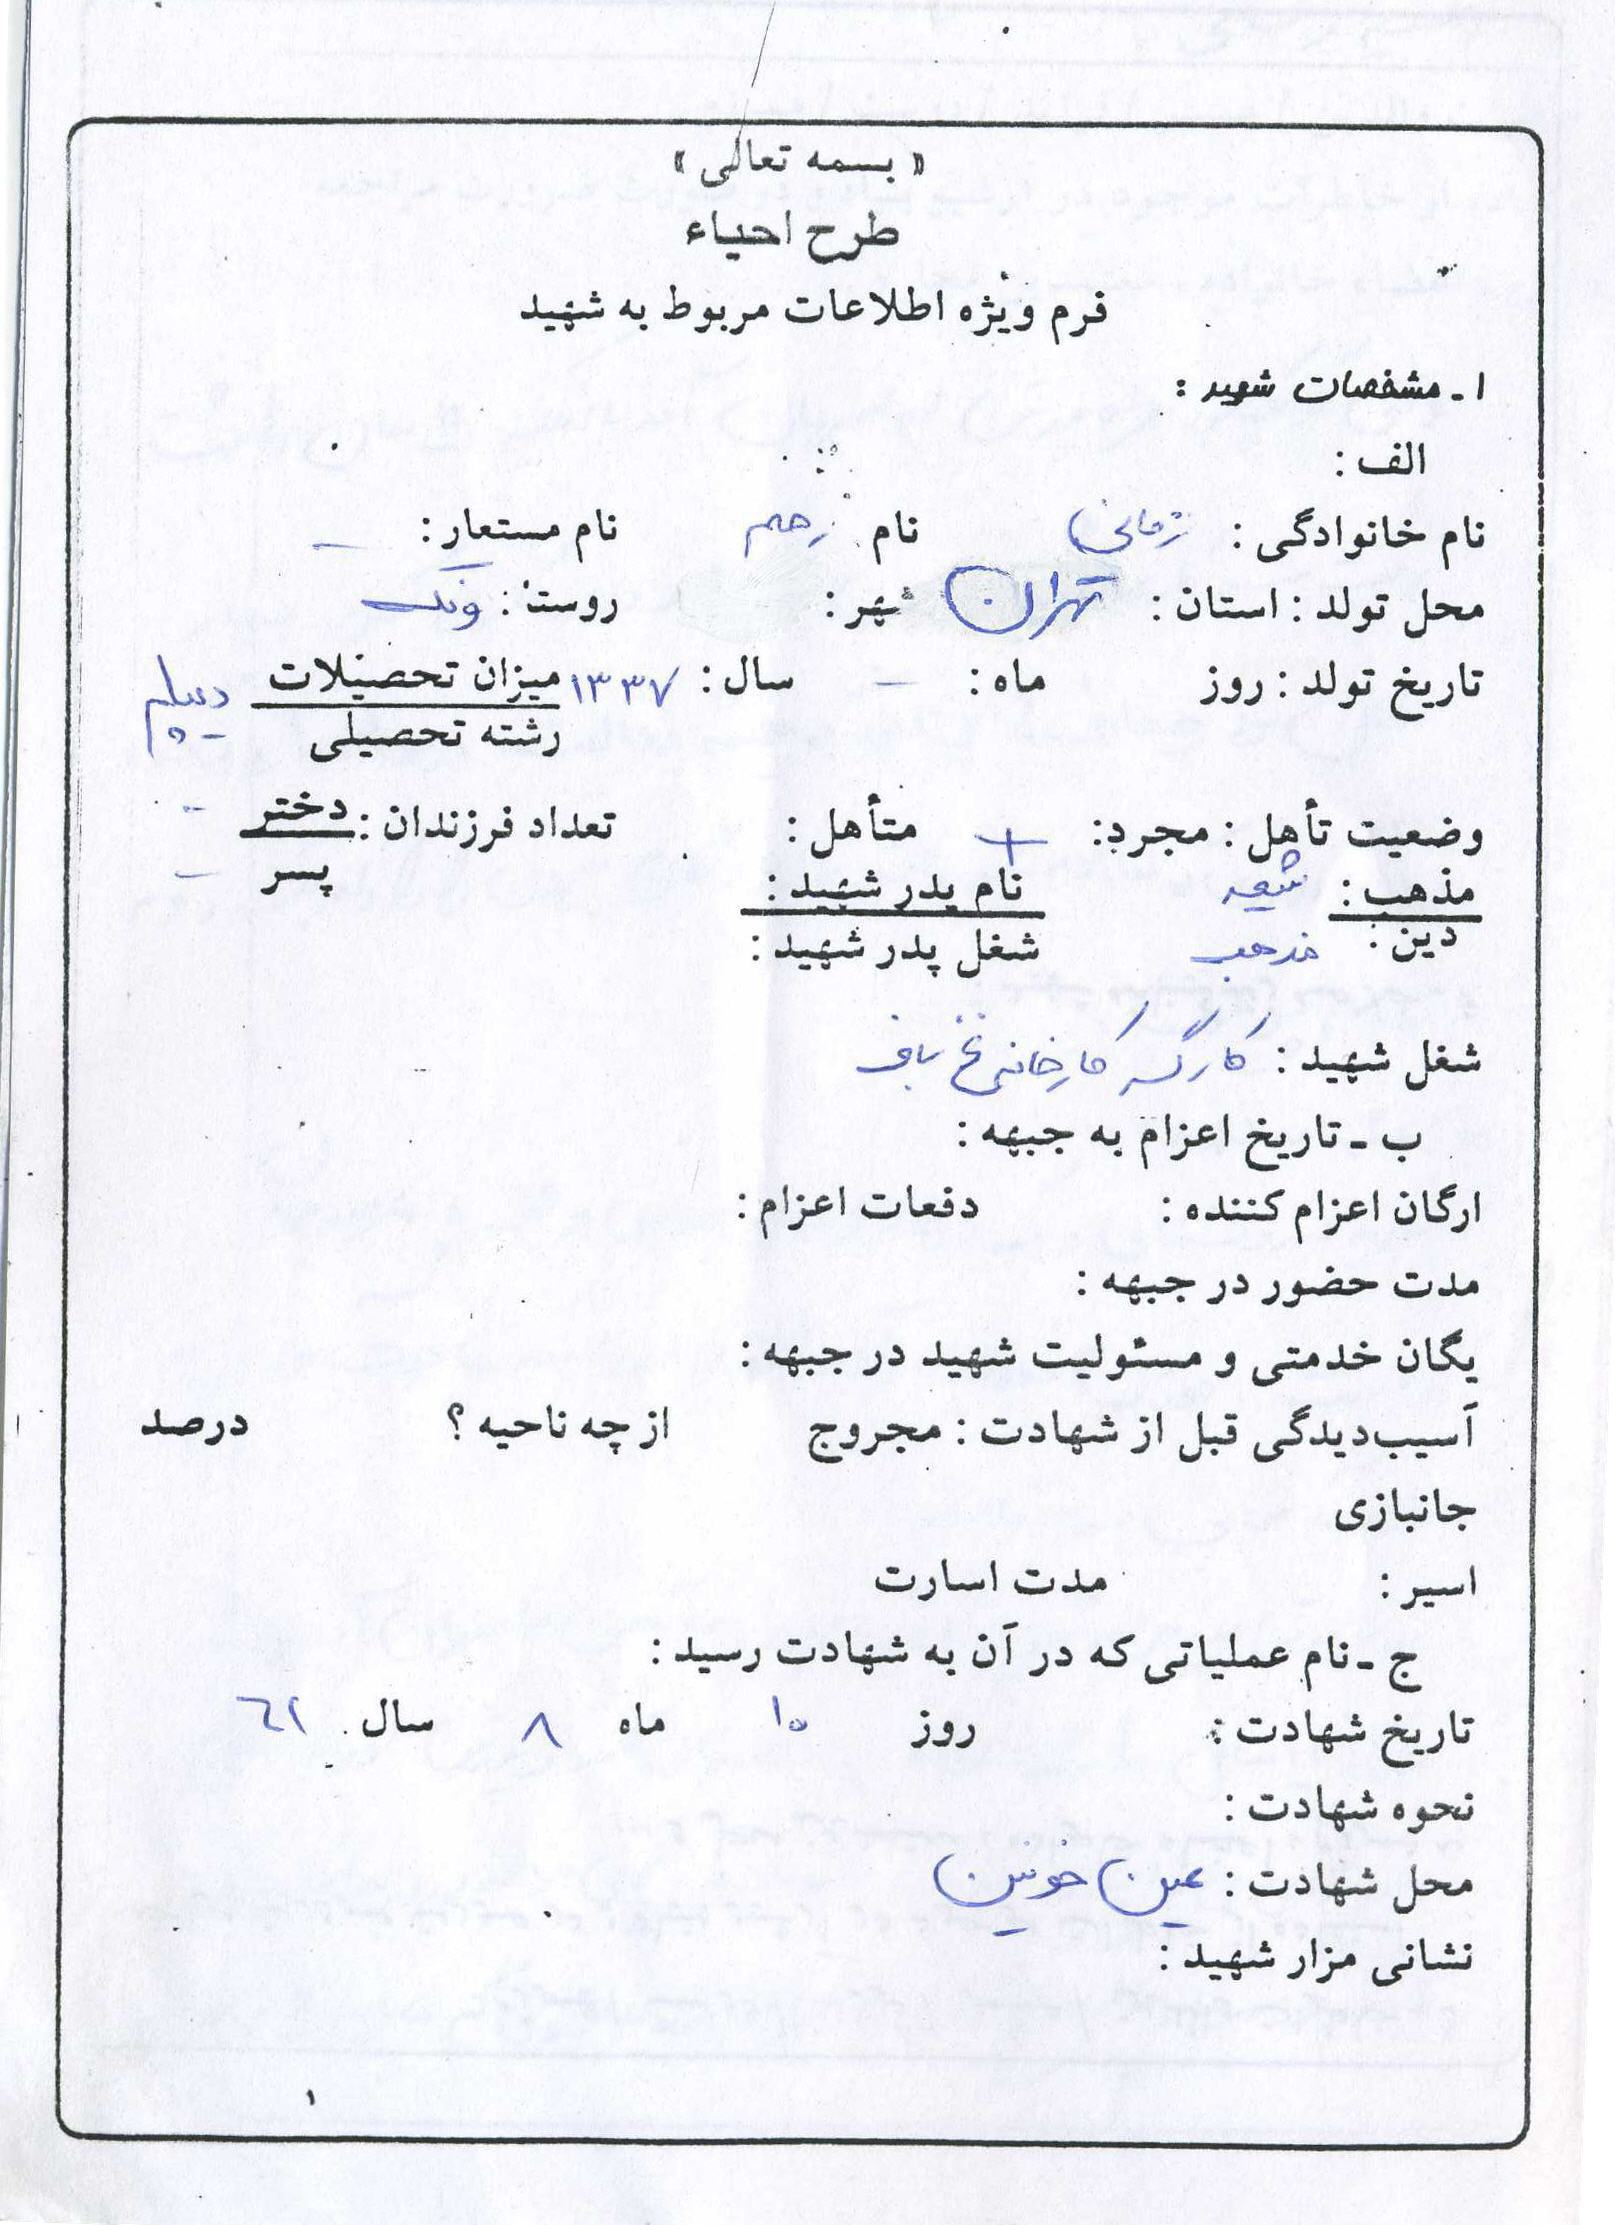 « بسمه تعالی »
طرح احیاء
فرم ویژه اطلاعات مربوط به شهید
۱ ـ مشخصات شهید :
الف :
نام خانوادگی : زمانی نام رحیم نام مستعار : ـ
محل تولد : استان : تهران شهر : روستا : ونک
تاریخ تولد : روز ماه : ـ سال : ۱۳۳۷ میزان تحصیلات دیپلم
رشته تحصیلی
وضعیت تأهل : مجرد : + متأهل : تعداد فرزندان : دختر ـ
پسر ـ
مذهب : شیعه نام پدر شهید :
دین : مذهب شغل پدر شهید :
شغل شهید : کارگر کارخانه نخ باف
ب ـ تاریخ اعزام به جبهه :
ارگان اعزام کننده : دفعات اعزام :
مدت حضور در جبهه :
یگان خدمتی و مسئولیت شهید در جبهه :
آسیب‌دیدگی قبل از شهادت : مجروح از چه ناحیه ؟ درصد
جانبازی
اسیر : مدت اسارت
ج ـ نام عملیاتی که در آن به شهادت رسید :
تاریخ شهادت : روز ۱۰ ماه ۸ سال ۶۱
نحوه شهادت :
محل شهادت : عین خوش
نشانی مزار شهید :
۱